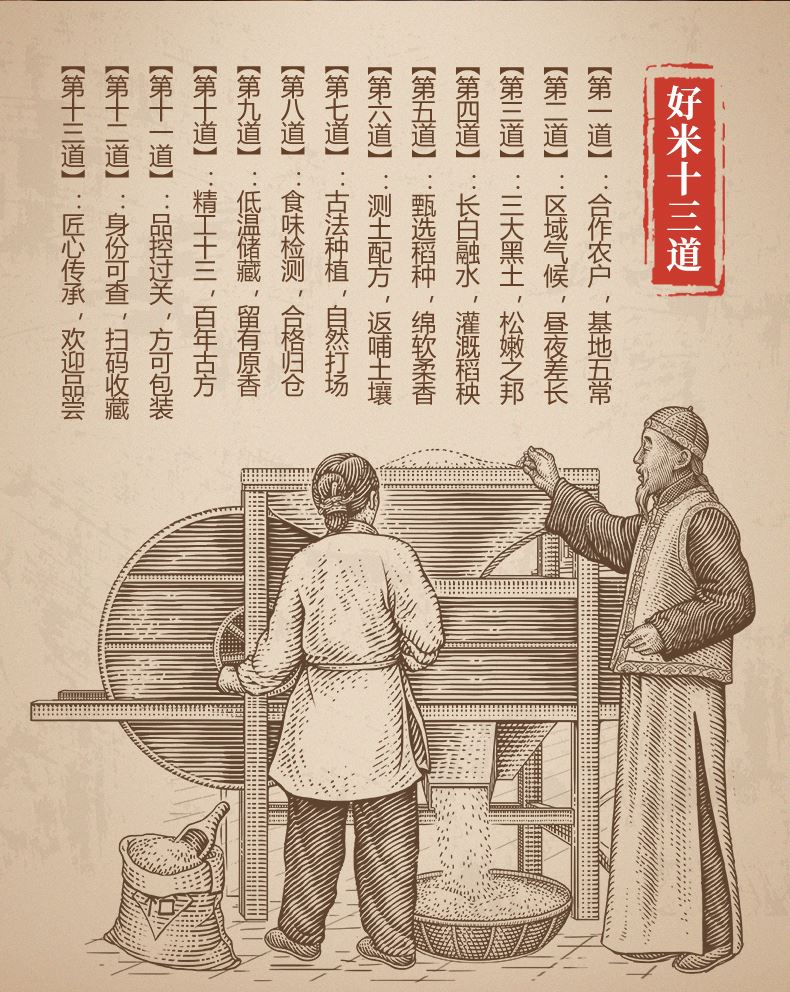 好米十三道
【第一道】：合作农户，基地五常
【第二道】：区域气候，昼夜差长
【第三道】：三大黑土，松嫩之邦
【第四道】：长白融水，灌溉稻秧
【第五道】：甄选稻种，绵软柔香
【第六道】：测土配方，返哺土壤
【第七道】：古法种植，自然打场
【第八道】：食味检测，合格归仓
【第九道】：低温储藏，留有原香
【第十道】：精工十三，百年古方
【第十一道】：品控过关，方可包装
【第十二道】：身份可查，扫码收藏
【第十三道】：匠心传承，欢迎品尝